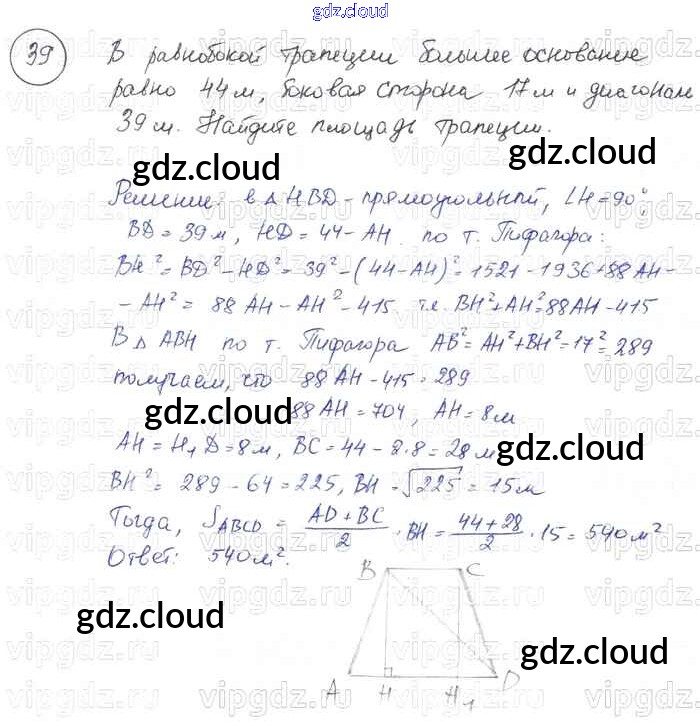 gdz.cloud
39 В равнобокой трапеции большее основание
равно 44 м, боковая сторона 17 м и диагональ
39 м. Найдите площадь трапеции.
gdz.cloud
gdz.cloud
Решение: в △HBD - прямоугольный, ∠H = 90°,
BD = 39 м, HD = 44 - AH. по т. Пифагора:
BH² = BD² - HD² = 39² - (44 - AH)² = 1521 - 1936 + 88 AH -
- AH² = 88 AH - AH² - 415 т.е. BH² + AH² = 88 AH - 415
В △ ABH по т. Пифагора AB² = AH² + BH² = 17² = 289
получаем, что 88 AH - 415 = 289
gdz.cloud
88 AH = 704, AH = 8 м
AH = H₁D = 8 м, BC = 44 - 2·8 = 28 м
gdz.cloud
BH² = 289 - 64 = 225, BH = √225 = 15 м
Тогда, S ABCD = (AD + BC)/2 · BH = (44 + 28)/2 · 15 = 540 м²
Ответ: 540 м².
gdz.cloud
B C
gdz.cloud
gdz.cloud
A H H₁ D
vipgdz.ru